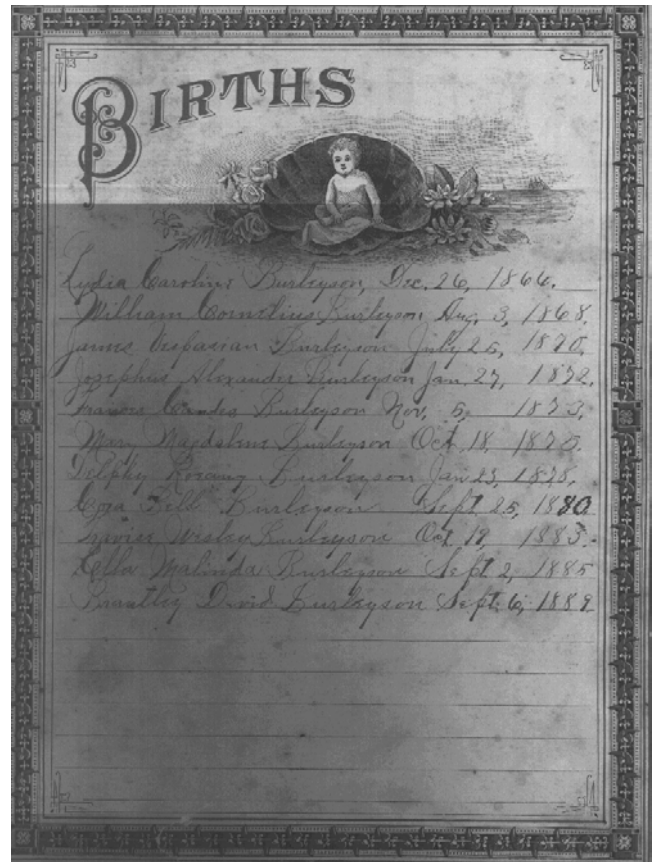 BIRTHS
Lydia Caroline Burleyson, Dec. 26, 1866.
William Cornelius Burleyson Aug. 3, 1868.
James Vespasian Burleyson July 25, 1870.
Josephus Alexander Burleyson Jan. 27, 1872.
Burleyson Nov. 5, 1873.
Mary Magdalene Burleyson Oct. 18, 1875.
Burleyson Jan 23, 1878.
Burleyson Sept 25, 1880
Wesley Burleyson Oct. 19, 1883.
Ella Malinda Burleyson Sept. 2, 1885
Brantley David Burleyson Sept. 6, 1889